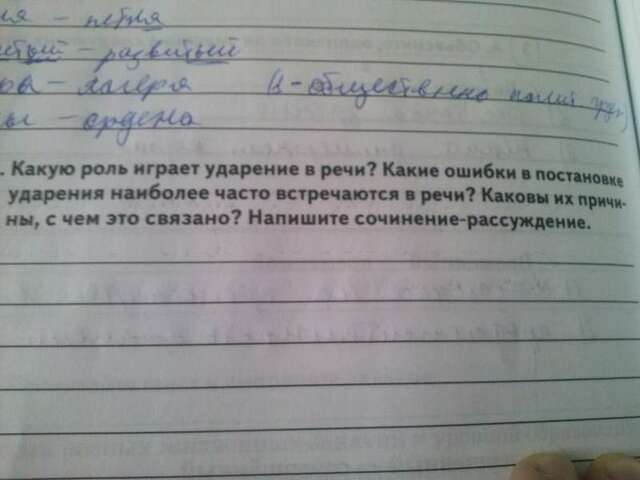 – петля
– развитый
– лагеря (в – общественно полит
– ордена
. Какую роль играет ударение в речи? Какие ошибки в постановке
ударения наиболее часто встречаются в речи? Каковы их причи-
ны, с чем это связано? Напишите сочинение-рассуждение.